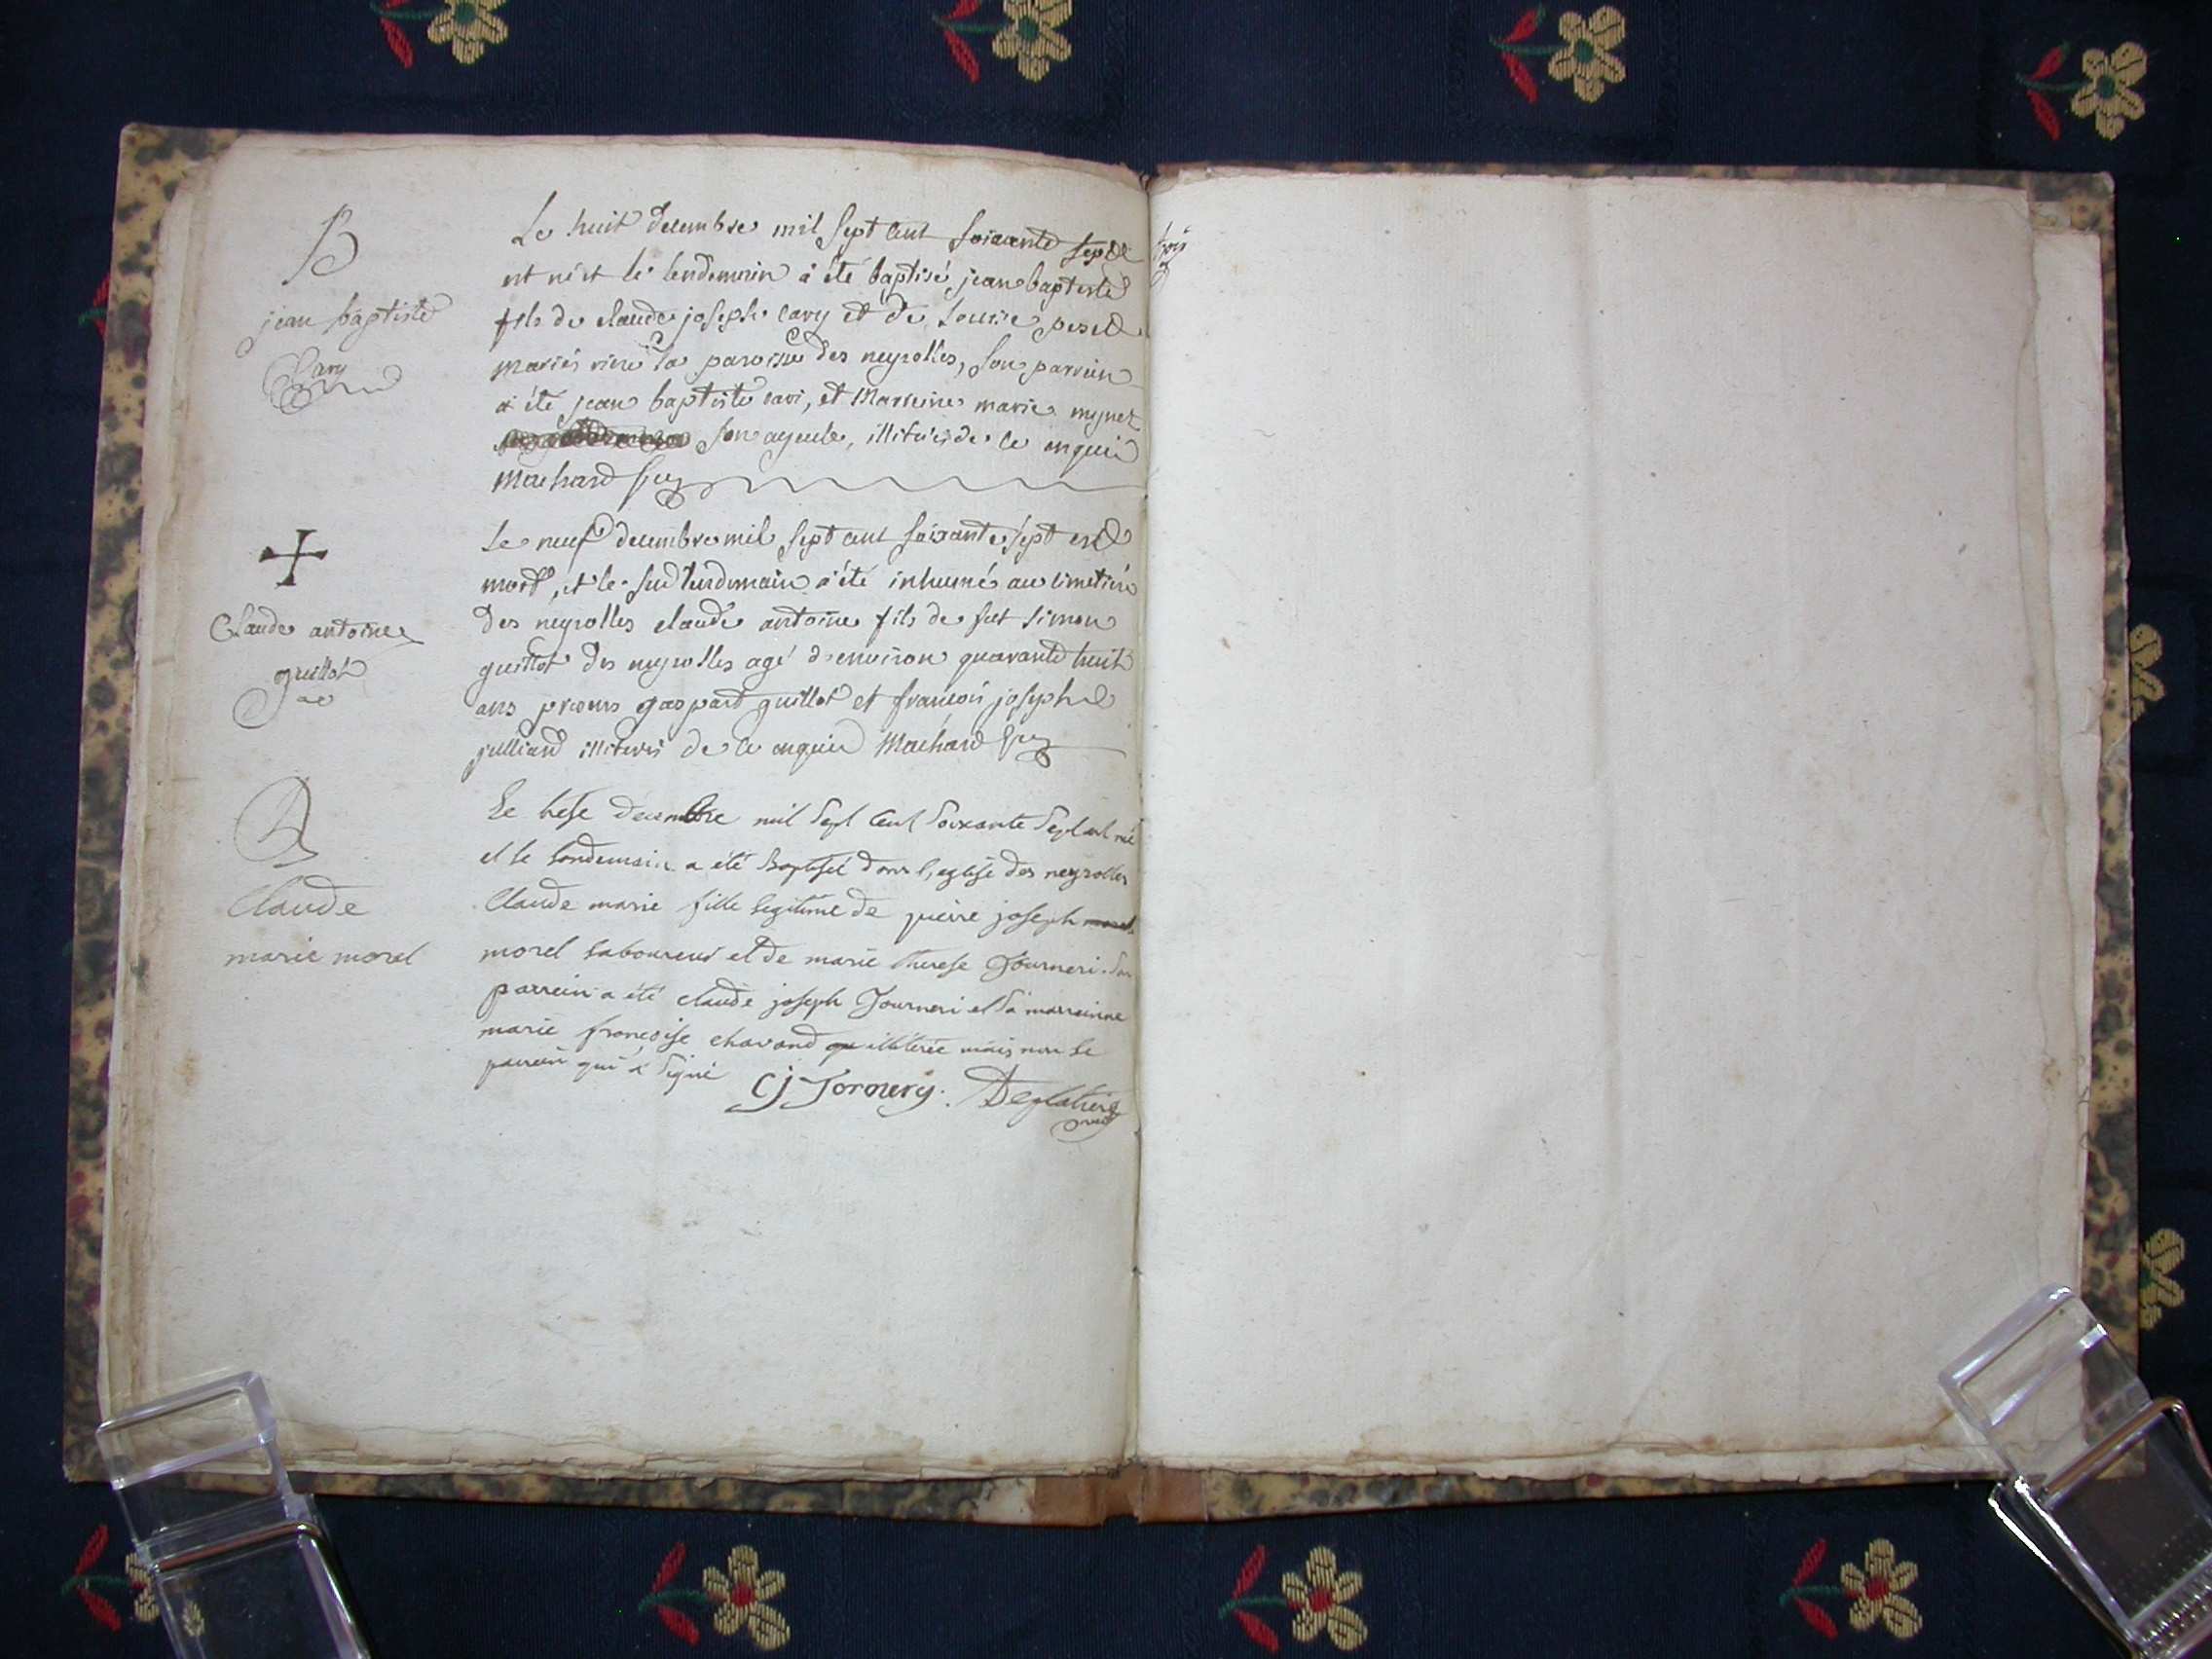 B
jean baptiste
Cavy
Le huit decembre mil sept cent soixante sept
est né et le lendemain a été baptisé jean baptiste
fils de claude joseph cavy et de Louise
mariés riere la paroisse des neyrolles, son parrein
a été jean baptiste cavi, et Marreine marie mynet
son ayeule, illiterés de ce enquis
Machard
Claude antoine
guillot
Le neuf decembre mil sept cent soixante sept est
mort, et le surlendemain a été inhumé au cimetiere
des neyrolles claude antoine fils de fut simon
guillot des neyrolles agé d'environ quarante huit
ans presens gaspard guillot et francois joseph
julliand illiterés de ce enquis Machard
B
Claude
marie morel
Le trese decembre mil sept cent soixante sept est né
et le landemain a été baptisé dans l'eglise des neyrolles
Claude marie fille legitime de pierre joseph morel
morel laboureur et de marie therese Journeri. Son
parrein a été claude joseph Journeri et sa marreinne
marie françoise chavand illiterée mais non le
parrein qui a signé
Cj Jornery.